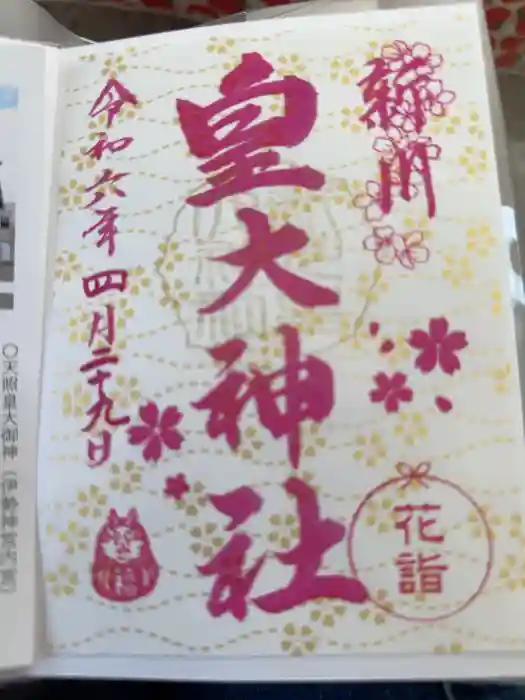 綿川
皇大神社
令和六年四月二十九日
花詣
○天照皇大御神（伊勢神宮内宮）